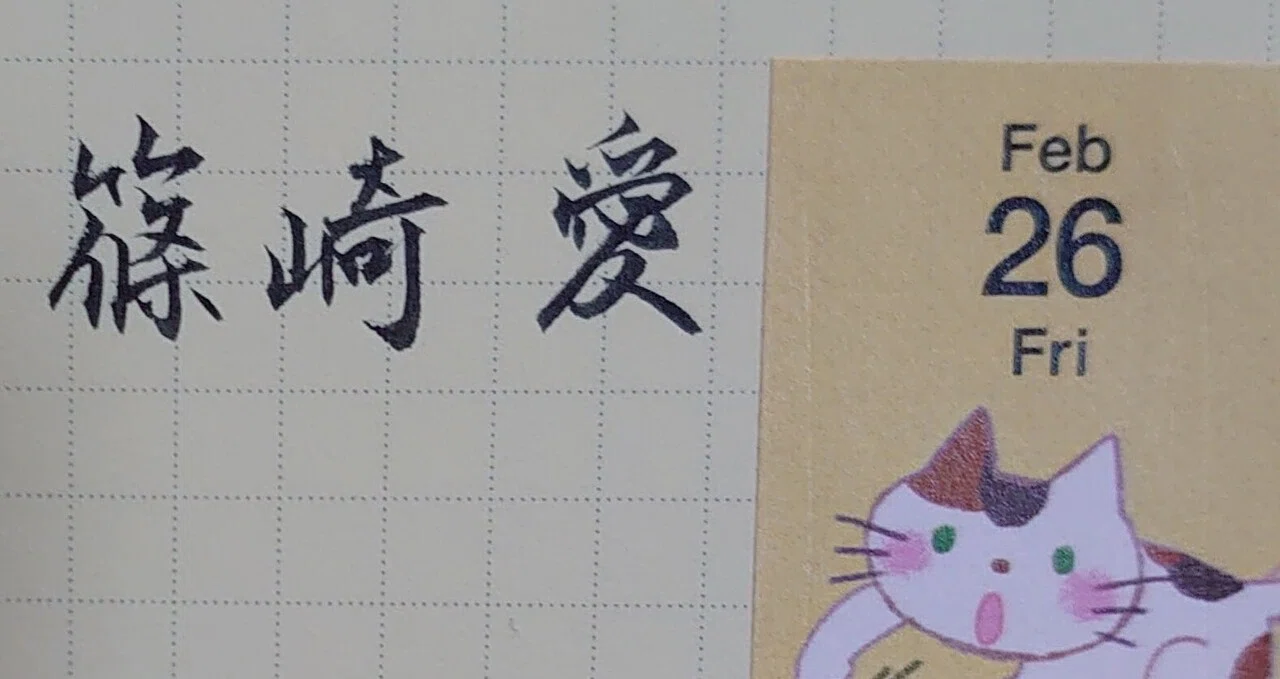 篠崎愛
Feb
26
Fri